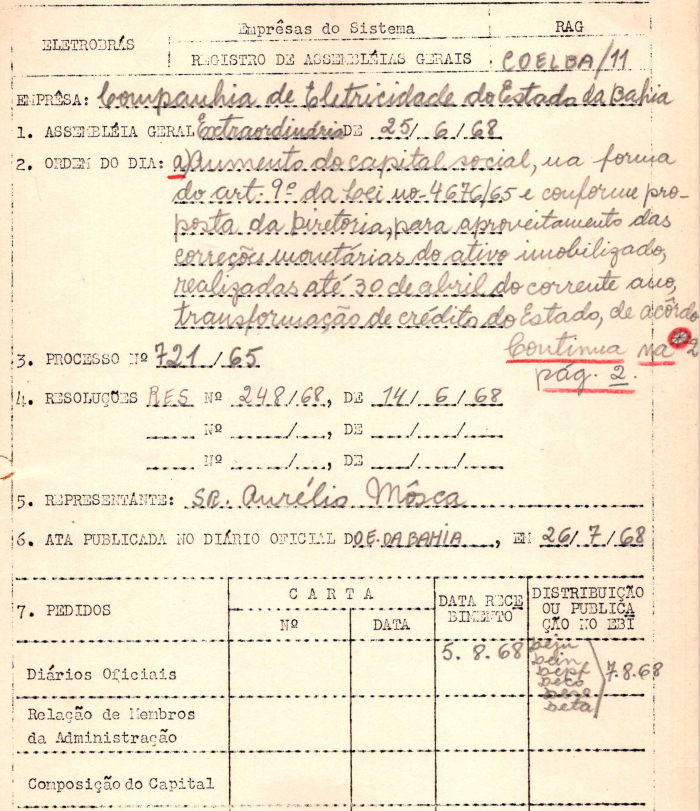 ELETROBRÁS
Emprêsas do Sistema
RAG
REGISTRO DE ASSEMBLÉIAS GERAIS
COELBA/11
EMPRÊSA: Companhia de Eletricidade do Estado da Bahia
1. ASSEMBLÉIA GERAL Extraordinária DE 25/6/68
2. ORDEM DO DIA: a) Aumento do capital social, na forma
do art. 9º da Lei nº 4676/65 e conforme pro-
posta da Diretoria, para aproveitamento das
correções monetárias do ativo imobilizado,
realizadas até 30 de abril do corrente ano,
transformação de crédito do Estado, de acôrdo
Continua na 2
pág. 2.
3. PROCESSO Nº 721/65
4. RESOLUÇÕES RES Nº 248/68, DE 14/6/68
Nº / , DE / /
Nº / , DE / /
5. REPRESENTANTE: SR. Aurélio Môsca
6. ATA PUBLICADA NO DIÁRIO OFICIAL D.O.E. DA BAHIA, EM 26/7/68
7. PEDIDOS
CARTA
Nº
DATA
DATA RECE
BIMENTO
DISTRIBUIÇÃO
OU PUBLICA
ÇÃO NO EBI
Diários Oficiais
5.8.68
deju
7.8.68
deta
Relação de Membros
da Administração
Composição do Capital